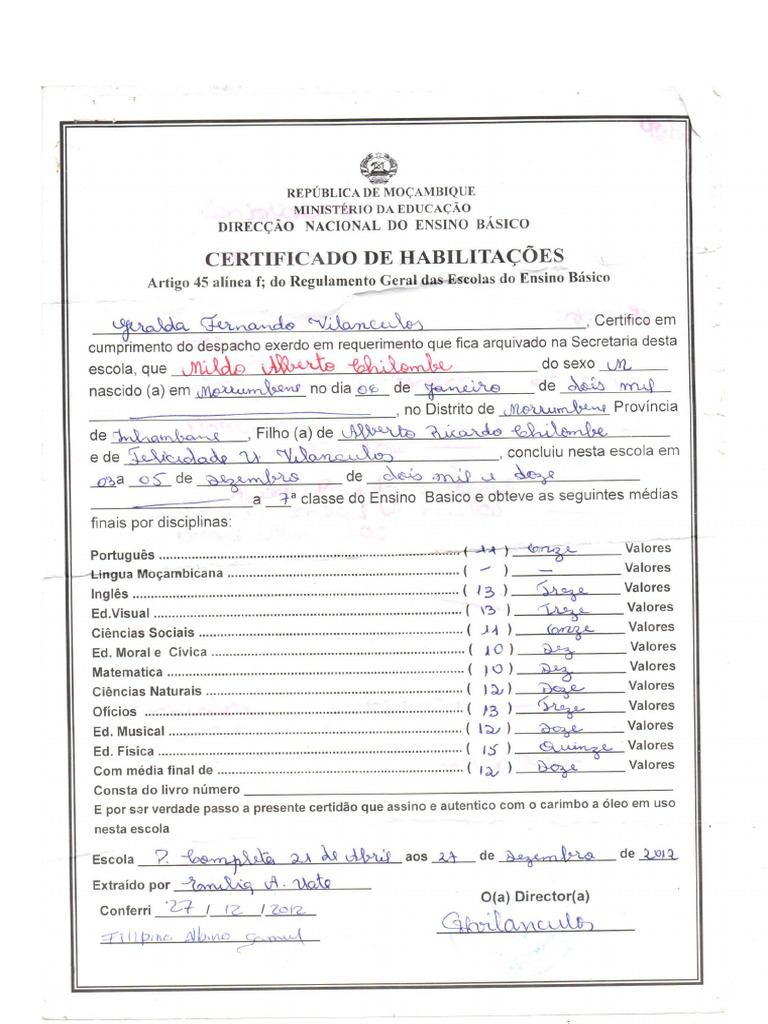 REPÚBLICA DE MOÇAMBIQUE
MINISTÉRIO DA EDUCAÇÃO
DIRECÇÃO NACIONAL DO ENSINO BÁSICO
CERTIFICADO DE HABILITAÇÕES
Artigo 45 alínea f; do Regulamento Geral das Escolas do Ensino Básico
Geralda Fernando Vilanculos, Certifico em
cumprimento do despacho exerdo em requerimento que fica arquivado na Secretaria desta
escola, que Nildo Alberto Chilombe do sexo M
nascido (a) em Morrumbene no dia 06 de Janeiro de dois mil
, no Distrito de Morrumbene Província
de Inhambane, Filho (a) de Alberto Ricardo Chilombe
e de Felicidade V. Vilanculos, concluiu nesta escola em
03a 05 de Dezembro de dois mil e doze
a 7ª classe do Ensino Basico e obteve as seguintes médias
finais por disciplinas:
Português ( 11 ) Onze Valores
Lingua Moçambicana ( - ) - Valores
Inglês ( 13 ) Treze Valores
Ed.Visual ( 13 ) Treze Valores
Ciências Sociais ( 11 ) Onze Valores
Ed. Moral e Cívica ( 10 ) Dez Valores
Matematica ( 10 ) Dez Valores
Ciências Naturais ( 12 ) Doze Valores
Ofícios ( 13 ) Treze Valores
Ed. Musical ( 12 ) Doze Valores
Ed. Física ( 15 ) Quinze Valores
Com média final de ( 12 ) Doze Valores
Consta do livro número
E por ser verdade passo a presente certidão que assino e autentico com o carimbo a óleo em uso
nesta escola
Escola P. Completa 21 de Abril aos 27 de Dezembro de 2012
Extraído por Emilia A. Uate
O(a) Director(a)
Conferri 27 / 12 / 2012
GFVilanculos
Filipina Albino